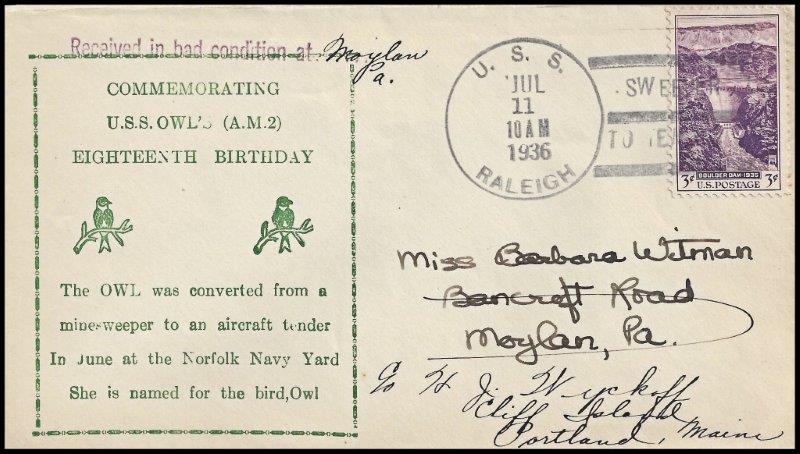 Received in bad condition at Moylan
Pa.
COMMEMORATING
U.S.S. OWL'S (A.M.2)
EIGHTEENTH BIRTHDAY
The OWL was converted from a
minesweeper to an aircraft tender
In June at the Norfolk Navy Yard
She is named for the bird,Owl
U. S. S.
JUL
11
10 AM
1936
RALEIGH
SWEE
TO TE
BOULDER DAM-1935
3¢ U.S. POSTAGE 3¢
Miss Barbara Witman
Bancroft Road
Moylan, Pa.
℅ H. J. Wyckoff
Cliff Island
Portland, Maine